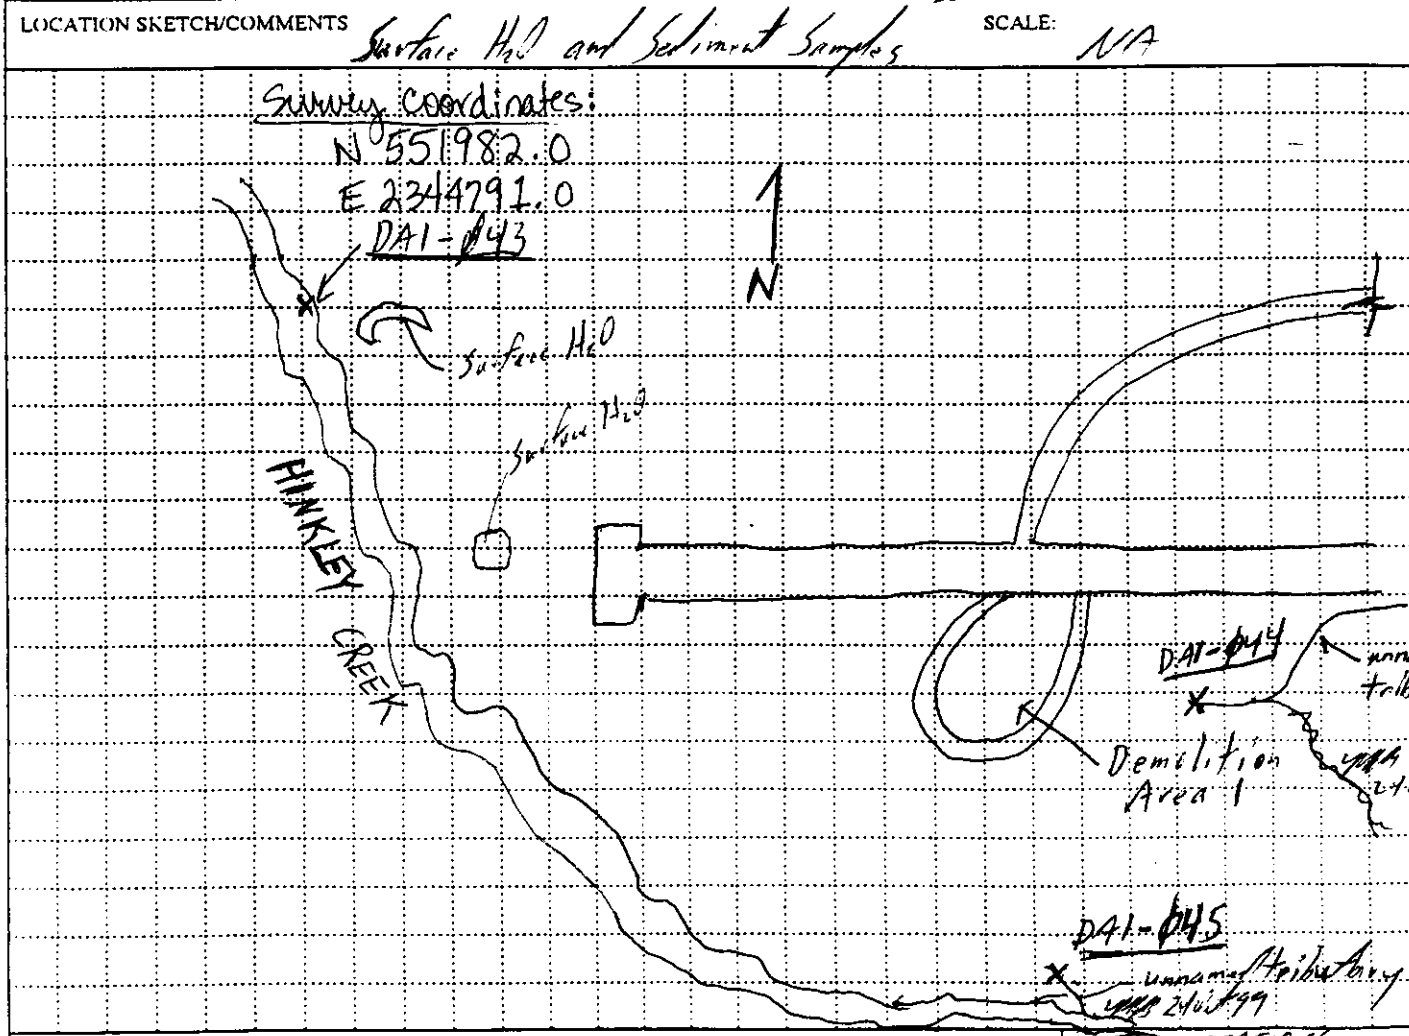 LOCATION SKETCH/COMMENTS Surface H2O and Sediment Samples SCALE: NA
Survey coordinates:
N 551982.0
E 2344791.0
DA1-043
N
Surface H2O
Surface H2O
HINKLEY
CREEK
DA1-044
Demolition
Area 1
DA1-045
unnamed tributary